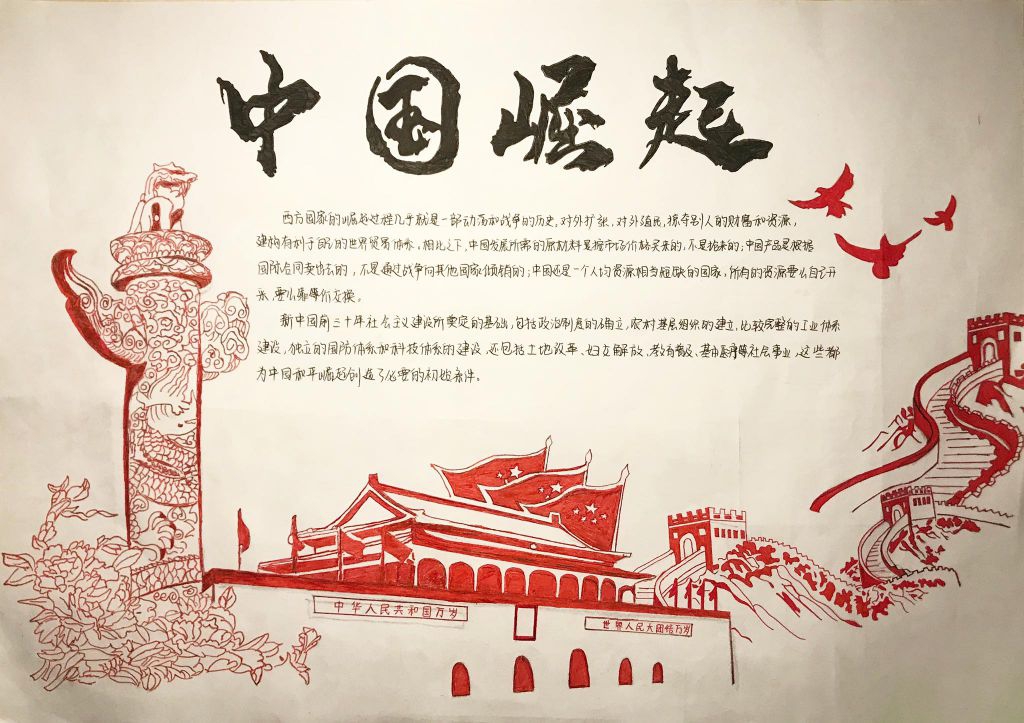 中国崛起
西方国家的崛起过程几乎就是一部动荡和战争的历史,对外扩张,对外殖民,掠夺别人的财富和资源,
建构有利于自己的世界贸易体系,相比之下,中国发展所需的原材料是按市场价格买来的,不是抢来的;中国产品是根据
国际合同卖出去的,不是通过战争向其他国家倾销的;中国还是一个人均资源相当短缺的国家,所有的资源要么自己开
采,要么靠等价交换。
新中国前三十年社会主义建设所奠定的基础,包括政治制度的确立,农村基层组织的建立,比较完整的工业体系
建设,独立的国防体系和科技体系的建设,还包括土地改革、妇女解放、教育普及、基本医疗等社会事业,这些都
为中国和平崛起创造了必要的初始条件。
中华人民共和国万岁
世界人民大团结万岁